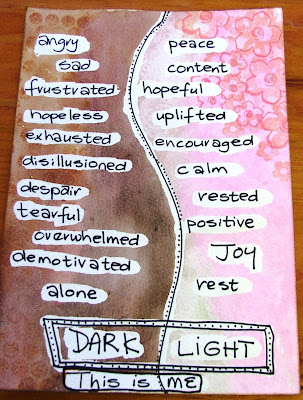 angry
sad
frustrated
hopeless
exhausted
disillusioned
despair
tearful
overwhelmed
demotivated
alone
peace
content
hopeful
uplifted
encouraged
calm
rested
positive
Joy
rest
DARK
LiGHT
This is ME